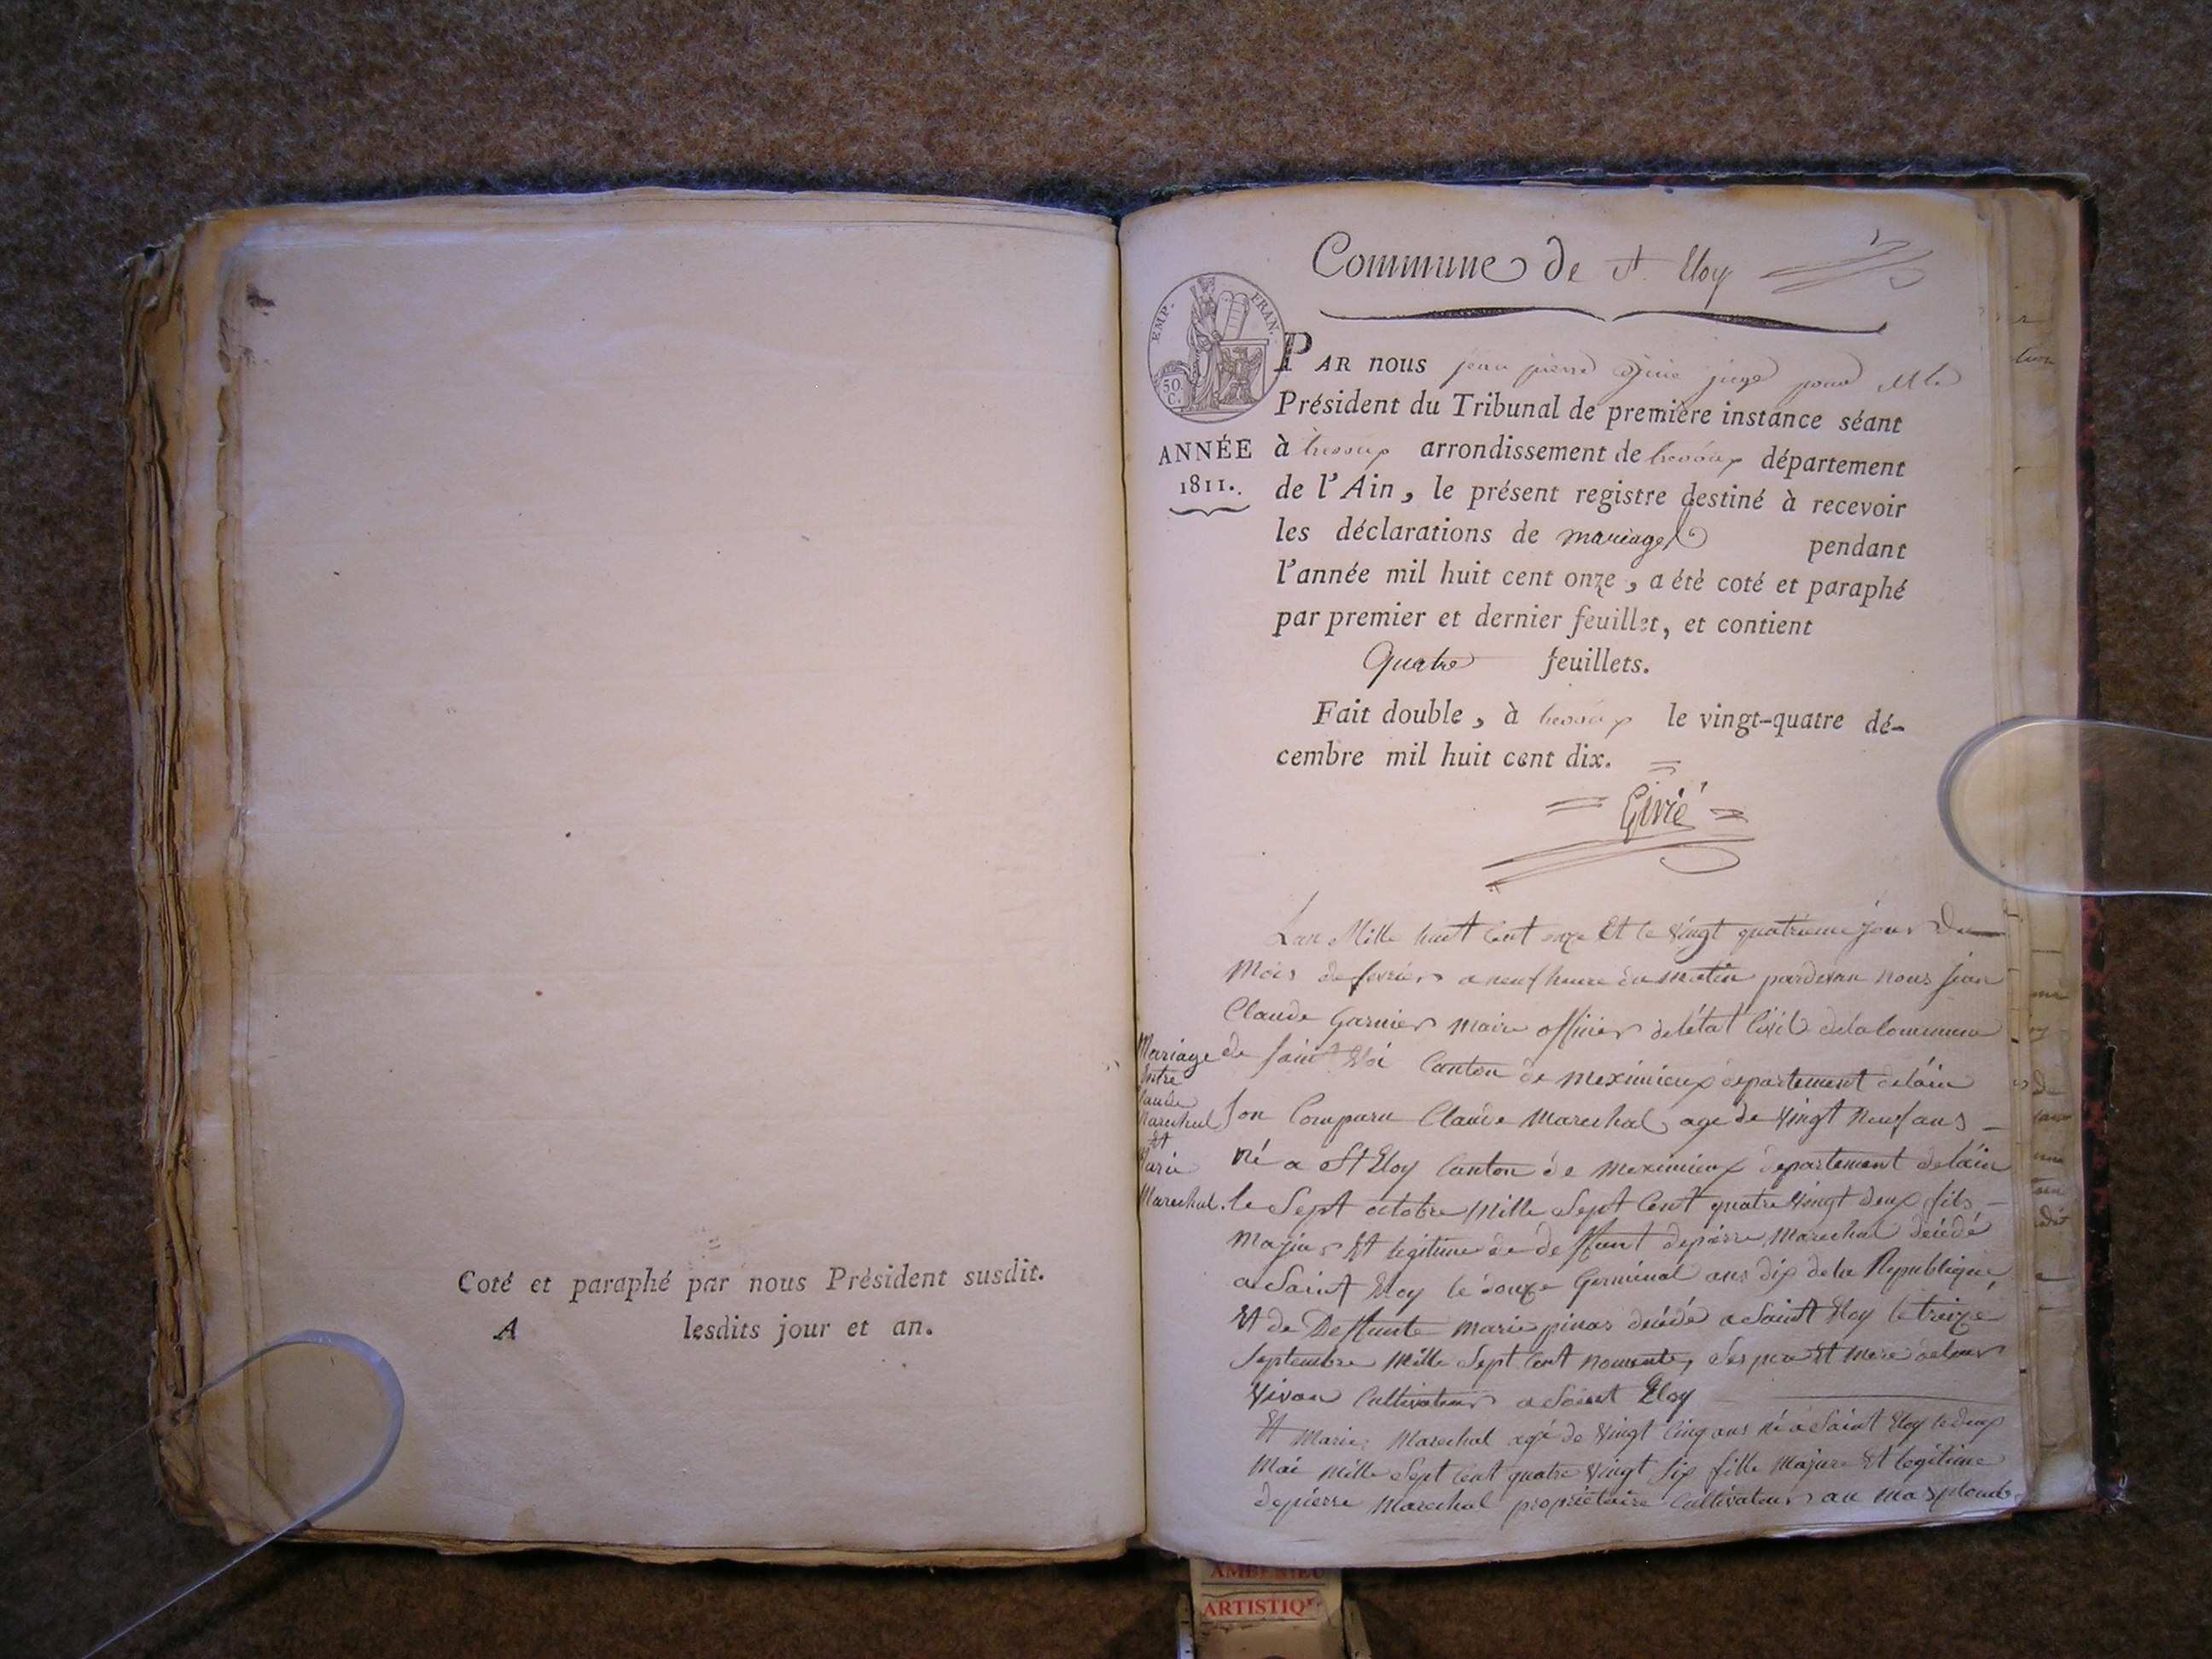 Coté et paraphé par nous Président susdit.
A lesdits jour et an.
Commune de St. Eloy
EMP. FRAN.
50. C.
ANNÉE
1811.
PAR nous jean pierre juge pour Mr le
Président du Tribunal de première instance séant
à trevoux arrondissement de trevoux département
de l'Ain, le présent registre destiné à recevoir
les déclarations de mariages pendant
l'année mil huit cent onze, a été coté et paraphé
par premier et dernier feuillet, et contient
Quatre feuillets.
Fait double, à trevoux le vingt-quatre dé-
cembre mil huit cent dix.
Mariage
Entre
Claude
Marechal
Et
Marie
Marechal.
Lan Mille huit Cent onze Et le Vingt quatrieme jour du
Mois de fevrier a neuf heure du matin pardevan nous jean
Claude Garnier Maire officier de létat Civil de la Commune
de Saint Eloi Canton de meximieux departement de láin
Son Comparu Claude Marechal age de Vingt Neuf ans
né a St Eloy Canton de meximieux departement de láin
le Sept octobre Mille Sept Cent quatre Vingt deux fils
Majeur Et legitime de deffunt de pierre Marechal décédé
a Saint Eloy le douze Germinal ans dix de la Republique
Et de Deffunte Marie pinas décédé a Saint Eloy le treize
Septembre Mille Sept Cent nonente, Ses pere Et Mere de leur
Vivan Cultivateur a Saint Eloy
Et Marie Marechal agé de Vingt Cinq ans né a Saint Eloy le deux
Mai Mille Sept Cent quatre Vingt Six fille Majure Et legitime
de pierre Marechal propriétaire Cultivateur au mas
AMBERIEU
ARTISTIQ